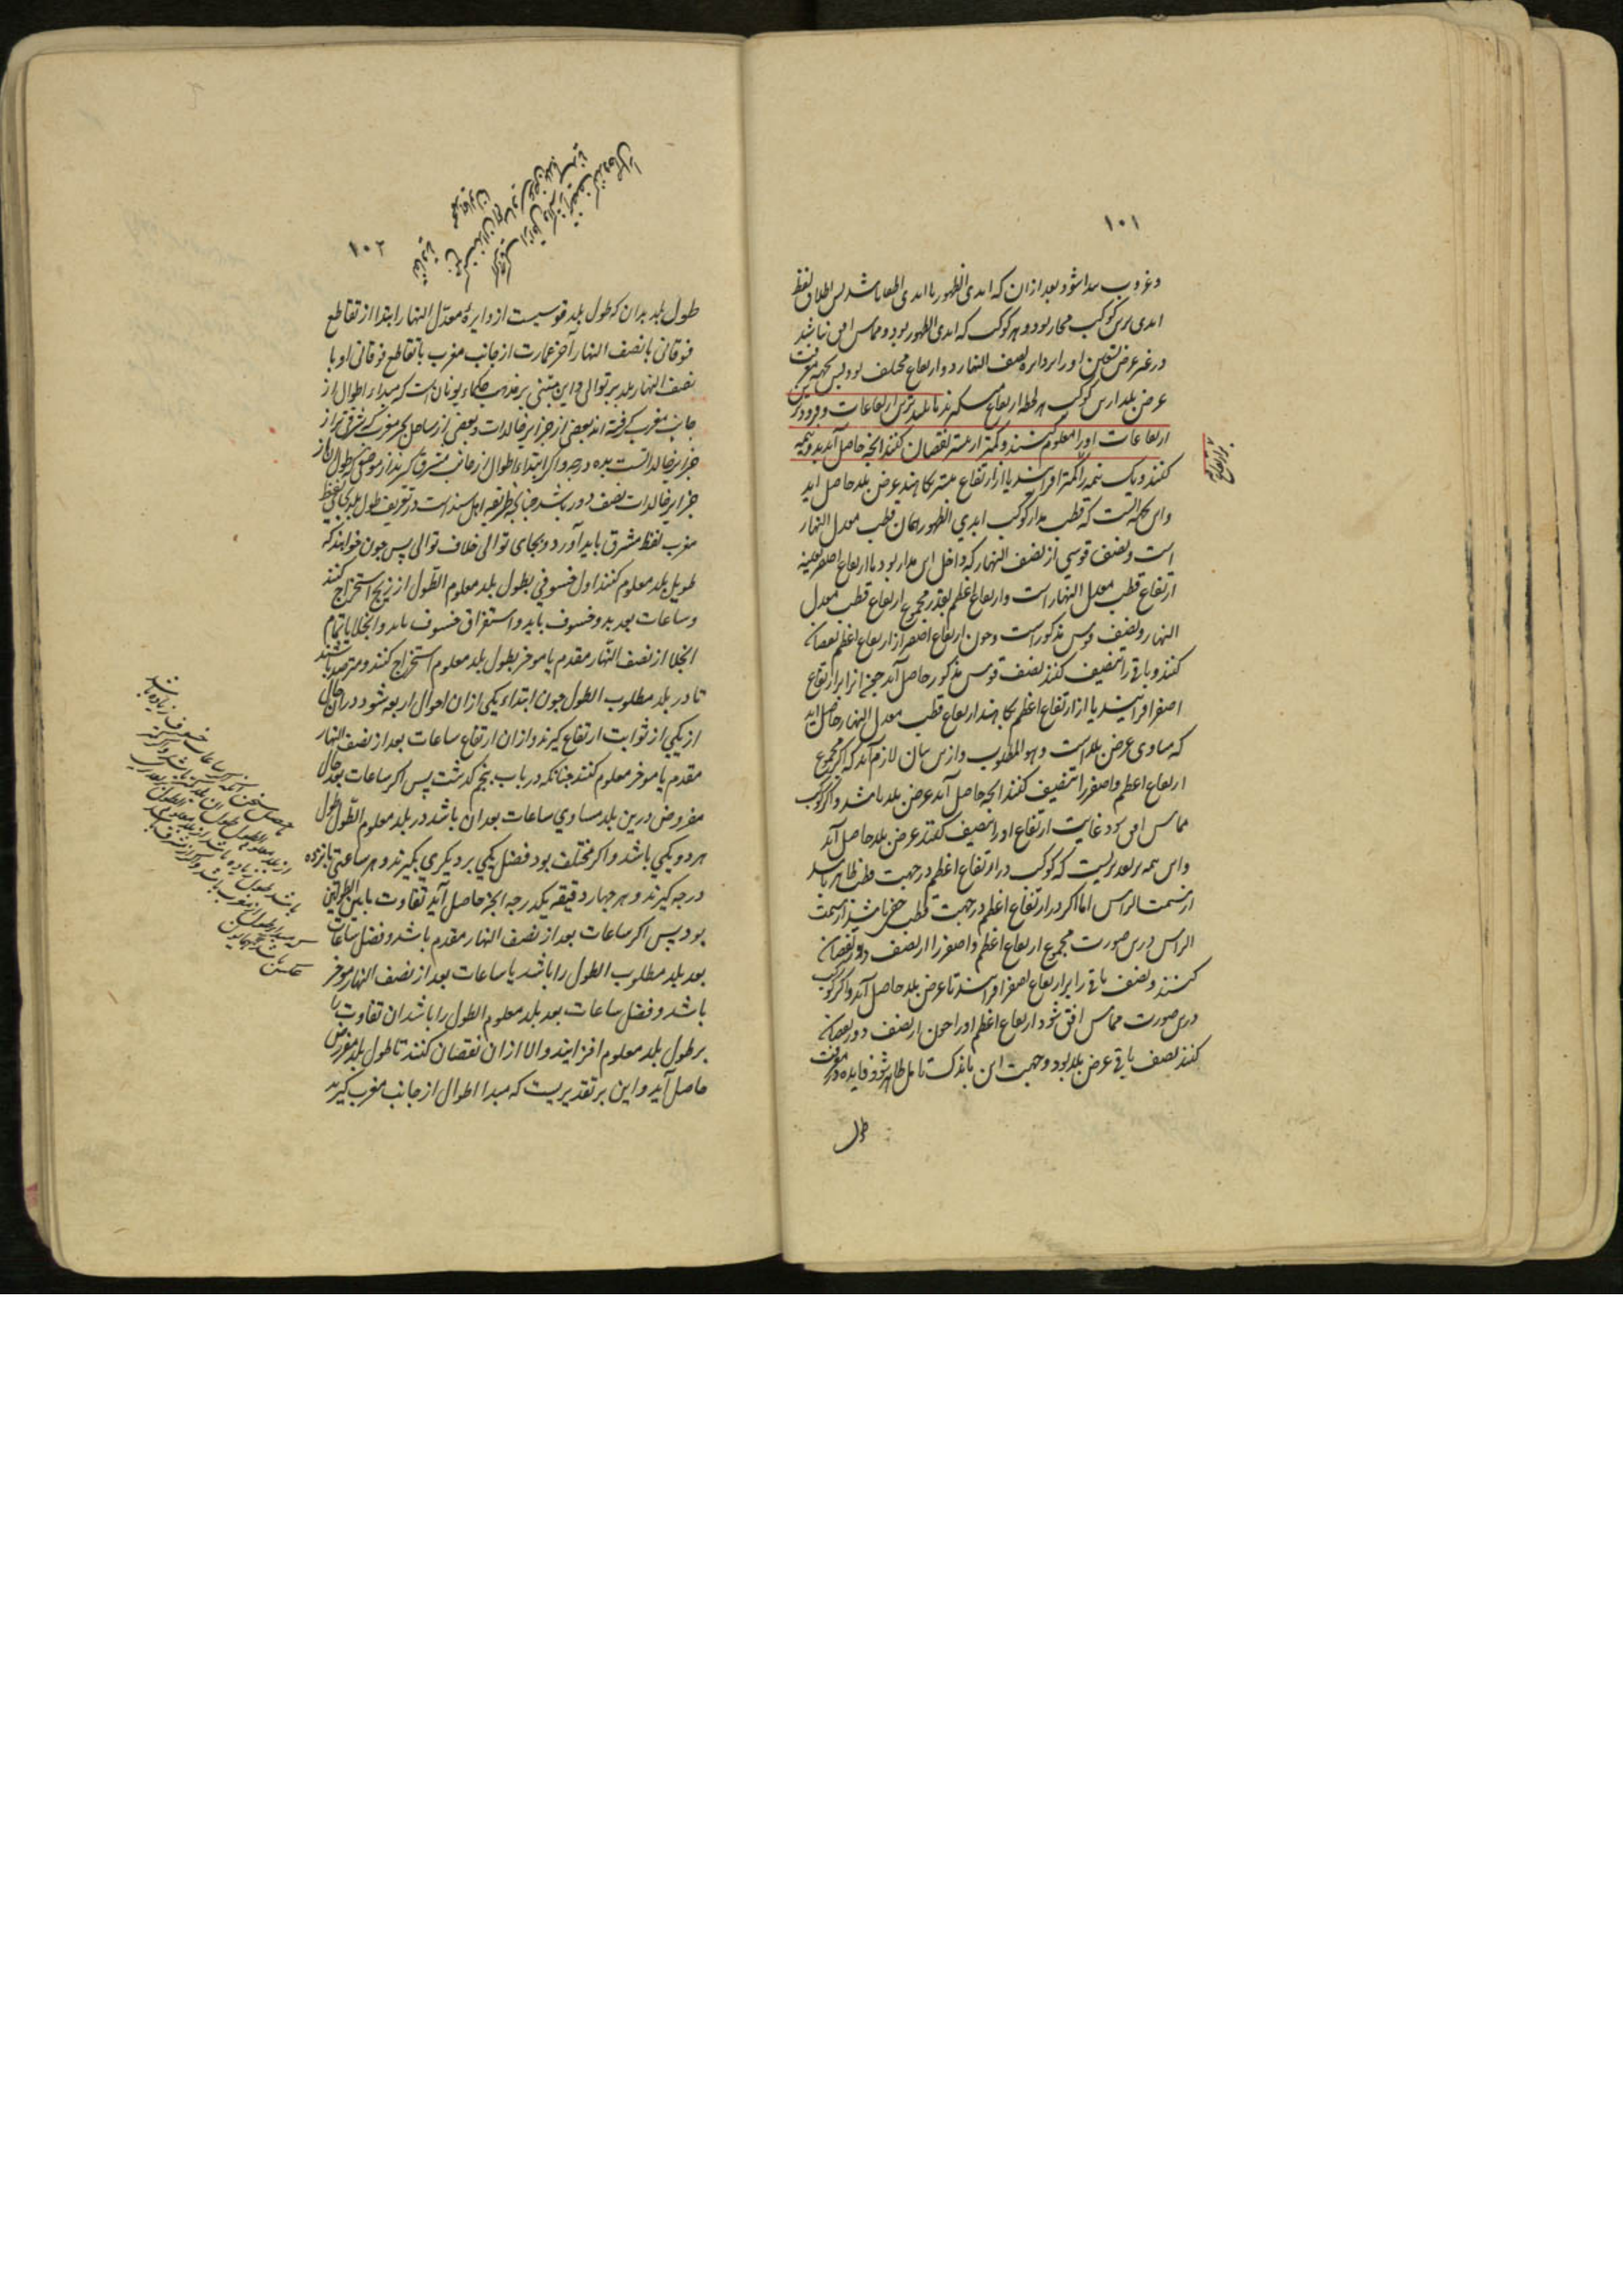 ۱۰۱
وغروب پیدا شود بعد ازان که ابدی الظهور یا ابدی الخفا باشد پس اطلاق لفظ
ابدی برین کوکب مجاز بود و هر کوکب که ابدی الظهور بود و مماس افق نباشد
در غیر عرض تسعین او را بر دایره نصف النهار دو ارتفاع مختلف بود پس بجهت معرفت
عرض بلد ازین کوکب هر لحظه ارتفاع میگیرند تا بلندترین ارتفاعات و فروترین
ارتفاعات او را معلوم کنند و کمتر از بیشتر نقصان کنند آنچه حاصل آید بدو نیمه
کنند و یک نیمه را بر کمتر افزایند یا از ارتفاع بیشتر بکاهند عرض بلد حاصل آید
و این بجهة آنست که قطب مدار کوکب ابدی الظهور همان قطب معدل النهار
است و نصف قوسی از نصف النهار که داخل این مدار بود با ارتفاع اصغر بعینه
ارتفاع قطب معدل النهار است و ارتفاع اعظم بقدر مجموع ارتفاع قطب معدل
النهار و نصف قوس مذکور است و چون ارتفاع اصغر از ارتفاع اعظم نقصان
کنند و باقی را تنصیف کنند نصف قوس مذکور حاصل آید چون آنرا بر ارتفاع
اصغر افزایند یا از ارتفاع اعظم بکاهند ارتفاع قطب معدل النهار حاصل آید
که مساوی عرض بلد است و هو المطلوب و ازین بیان لازم آید که اگر مجموع
ارتفاع اعظم و اصغر را تنصیف کنند آنچه حاصل آید عرض بلد باشد و اگر کوکب
مماس افق بود غایت ارتفاع او را تنصیف کنند عرض بلد حاصل آید
و این همه بر تقدیریست که کوکب در ارتفاع اعظم در جهت قطب ظاهر باشد
از سمت الراس اما اگر در ارتفاع اعظم در جهت قطب خفی باشد از سمت
الراس درین صورت مجموع ارتفاع اعظم و اصغر را از نصف دور نقصان
کنند و نصف باقی را بر ارتفاع اصغر افزایند تا عرض بلد حاصل آید و اگر کوکب
درین صورت مماس افق شود ارتفاع اعظم او را چون از نصف دور نقصان
کنند نصف باقی عرض بلد بود و جهت این باندک تامل ظاهر شود فایده در معرفت
طول
۱۰۲
طول بلد بدان که طول بلد قوسیست از دایرۀ معدّل النهار ابتدا از تقاطع
فوقانی با نصف النهار آخر عمارت از جانب مغرب تا تقاطع فوقانی او با
نصف النهار بلد بر توالی و این مبتنی بر مذهب حکماء یونان است که مبداء اطوال از
جانب مغرب گرفته اند بعضی از جزایر خالدات و بعضی از ساحل بحر مغرب که شرقی تر از
جزایر خالداتست بده درجه و اگر ابتداء اطوال از جانب مشرق گیرند از موضعی که طول آن از
جزایر خالدات نصف دور باشد چنانچه طریقه اهل هند است در تعریف طول بلد بجای لفظ
مغرب لفظ مشرق باید آورد و بجای توالی خلاف توالی پس چون خواهند که
طول بلد معلوم کنند اول خسوفی بطول بلد معلوم الطول از زیج استخراج کنند
و ساعات بعد بدو خسوف یابد و استغراق خسوف یابد و انجلا یا تمام
انجلا از نصف النهار مقدم یا موخر بطول بلد معلوم استخراج کنند و مترصد باشند
تا در بلد مطلوب الطول چون ابتداء یکی ازان احوال اربعه شود دران حال
از یکی از ثوابت ارتفاع گیرند و ازان ارتفاع ساعات بعد از نصف النهار
مقدم یا موخر معلوم کنند چنانکه در باب پنجم گذشت پس اگر ساعات بعد حال
مفروض درین بلد مساوی ساعات بعد آن باشد در بلد معلوم الطول طول
هر دو یکی باشد و اگر مختلف بود فضل یکی بر دیگری بگیرند و هر ساعتی پانزده
درجه گیرند و هر چهار دقیقه یکدرجه آنچه حاصل آید تفاوت ما بین الطولین
بود پس اگر ساعات بعد از نصف النهار مقدم باشد و فضل ساعات
بعد بلد مطلوب الطول را باشد یا ساعات بعد از نصف النهار موخر
باشد و فضل ساعات بعد بلد معلوم الطول را باشد آن تفاوت را
بر طول بلد معلوم افزایند و الا ازان نقصان کنند تا طول بلد مفروض
حاصل آید و این بر تقدیریست که مبدا اطوال از جانب مغرب گیرند